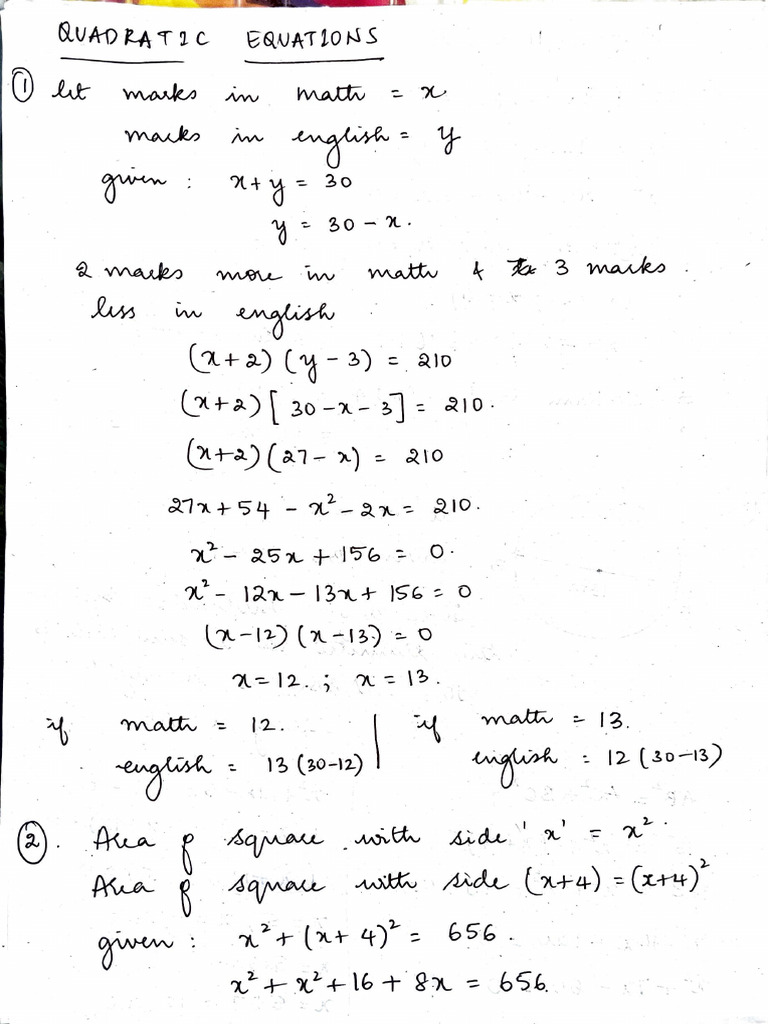 QUADRATIC EQUATIONS
① let marks in math = x
marks in english = y
given : x + y = 30
y = 30 - x.
2 marks more in math & 3 marks
less in english
(x+2) (y - 3) = 210
(x+2) [ 30 - x - 3] = 210.
(x+2) (27 - x) = 210
27x + 54 - x² - 2x = 210.
x² - 25x + 156 = 0.
x² - 12x - 13x + 156 = 0
(x-12) (x-13) = 0
x = 12. ; x = 13.
if math = 12. | if math = 13.
english = 13 (30-12) | english = 12 (30-13)
②. Area of square with side 'x' = x².
Area of square with side (x+4) = (x+4)²
given : x² + (x+ 4)² = 656.
x² + x² + 16 + 8x = 656.